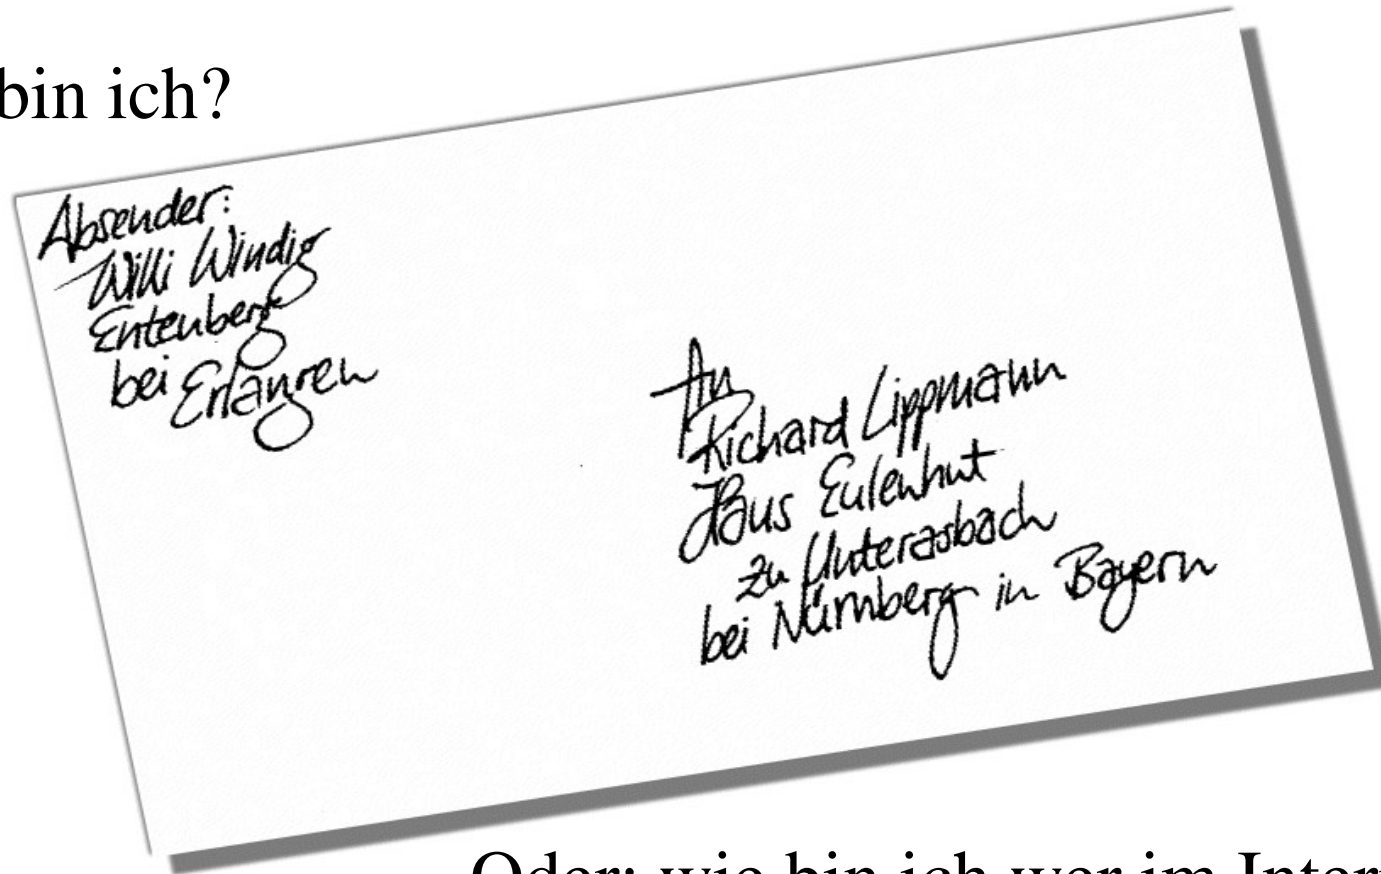 bin ich?
Absender:
Willi Windig
Entenberg
bei Erlangen
An
Richard Lippmann
Haus Eulenhut
zu Unterasbach
bei Nürnberg in Bayern
Oder: wie bin ich wer im Inter